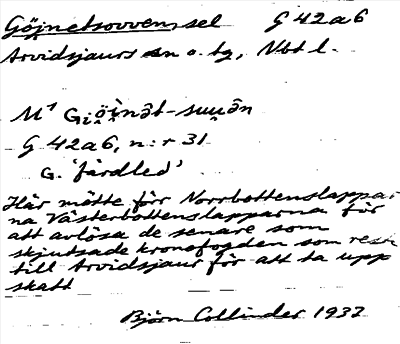 Göjnetsovvensel G 42a6
Arvidsjaurs sn o. tg, Nbt l.
M¹
G 42a6, n:r 31
G. 'färdled'
Här mötte förr Norrbottenslappar
na Västerbottenslapparna för
att avlösa de senare som
skjutsade kronofogden som reste
till Arvidsjaur för att ta upp
skatt
Björn Collinder 1932